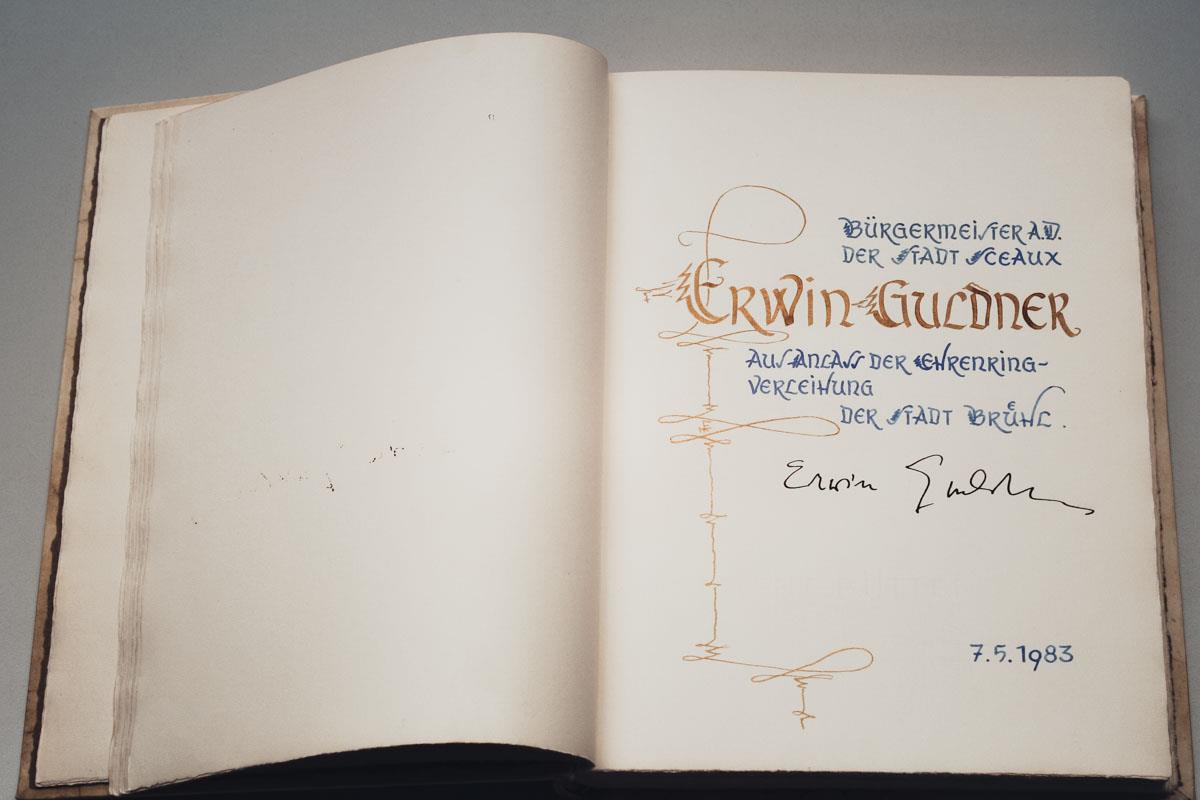 BÜRGERMEISTER A.D.
DER STADT SCEAUX
ERWIN GULDNER
AUS ANLASS DER EHRENRING-
VERLEIHUNG
DER STADT BRÜHL.
Erwin Guldner
7.5.1983